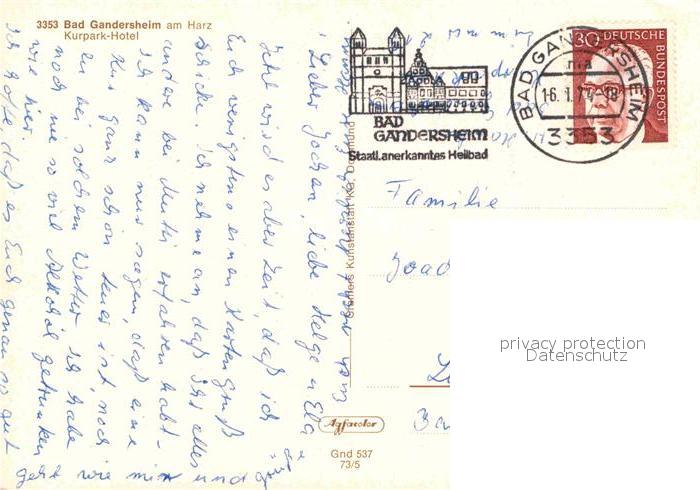 3353 Bad Gandersheim am Harz
Kurpark-Hotel
BAD
GANDERSHEIM
Staatl. anerkanntes Heilbad
BAD GANDERSHEIM
16.1.74-18
3353
30 DEUTSCHE
BUNDESPOST
Lieber Jochen, liebe Helga u. Ela
Jetzt wird es aber Zeit, daß ich
Euch wenigstens einen Kartengruß
schicke. Ich nehme an, daß Ihr alles
andere bei Mutti erfahren habt.
Ich kann nur sagen, daß eine
Kur ganz schön teuer ist, noch
zu bei solchem Wetter. Ich habe
noch nie so viel Alkohol getrunken
wie hier.
Ich hoffe, daß es Euch genau so gut
geht wie mir und
Familie
Joac
Ba
Kunstanstalt KG, Dortmund
Agfacolor
Gnd 537
73/5
privacy protection
Datenschutz